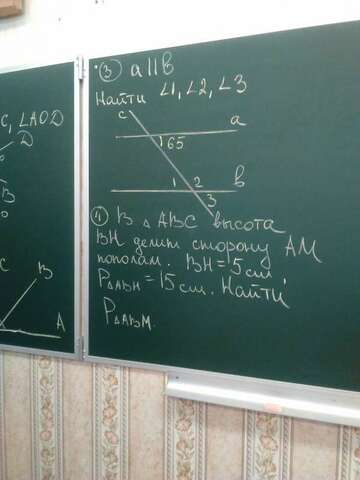 С, ∠АОD
D
B
C
B
A
③ a||в
Найти ∠1, ∠2, ∠3
c
a
65
1 2 в
3
④ В △ АВС высота
ВН делит сторону АМ
пополам. ВН = 5 см,
P△ABH = 15 см. Найти
P△ABM.